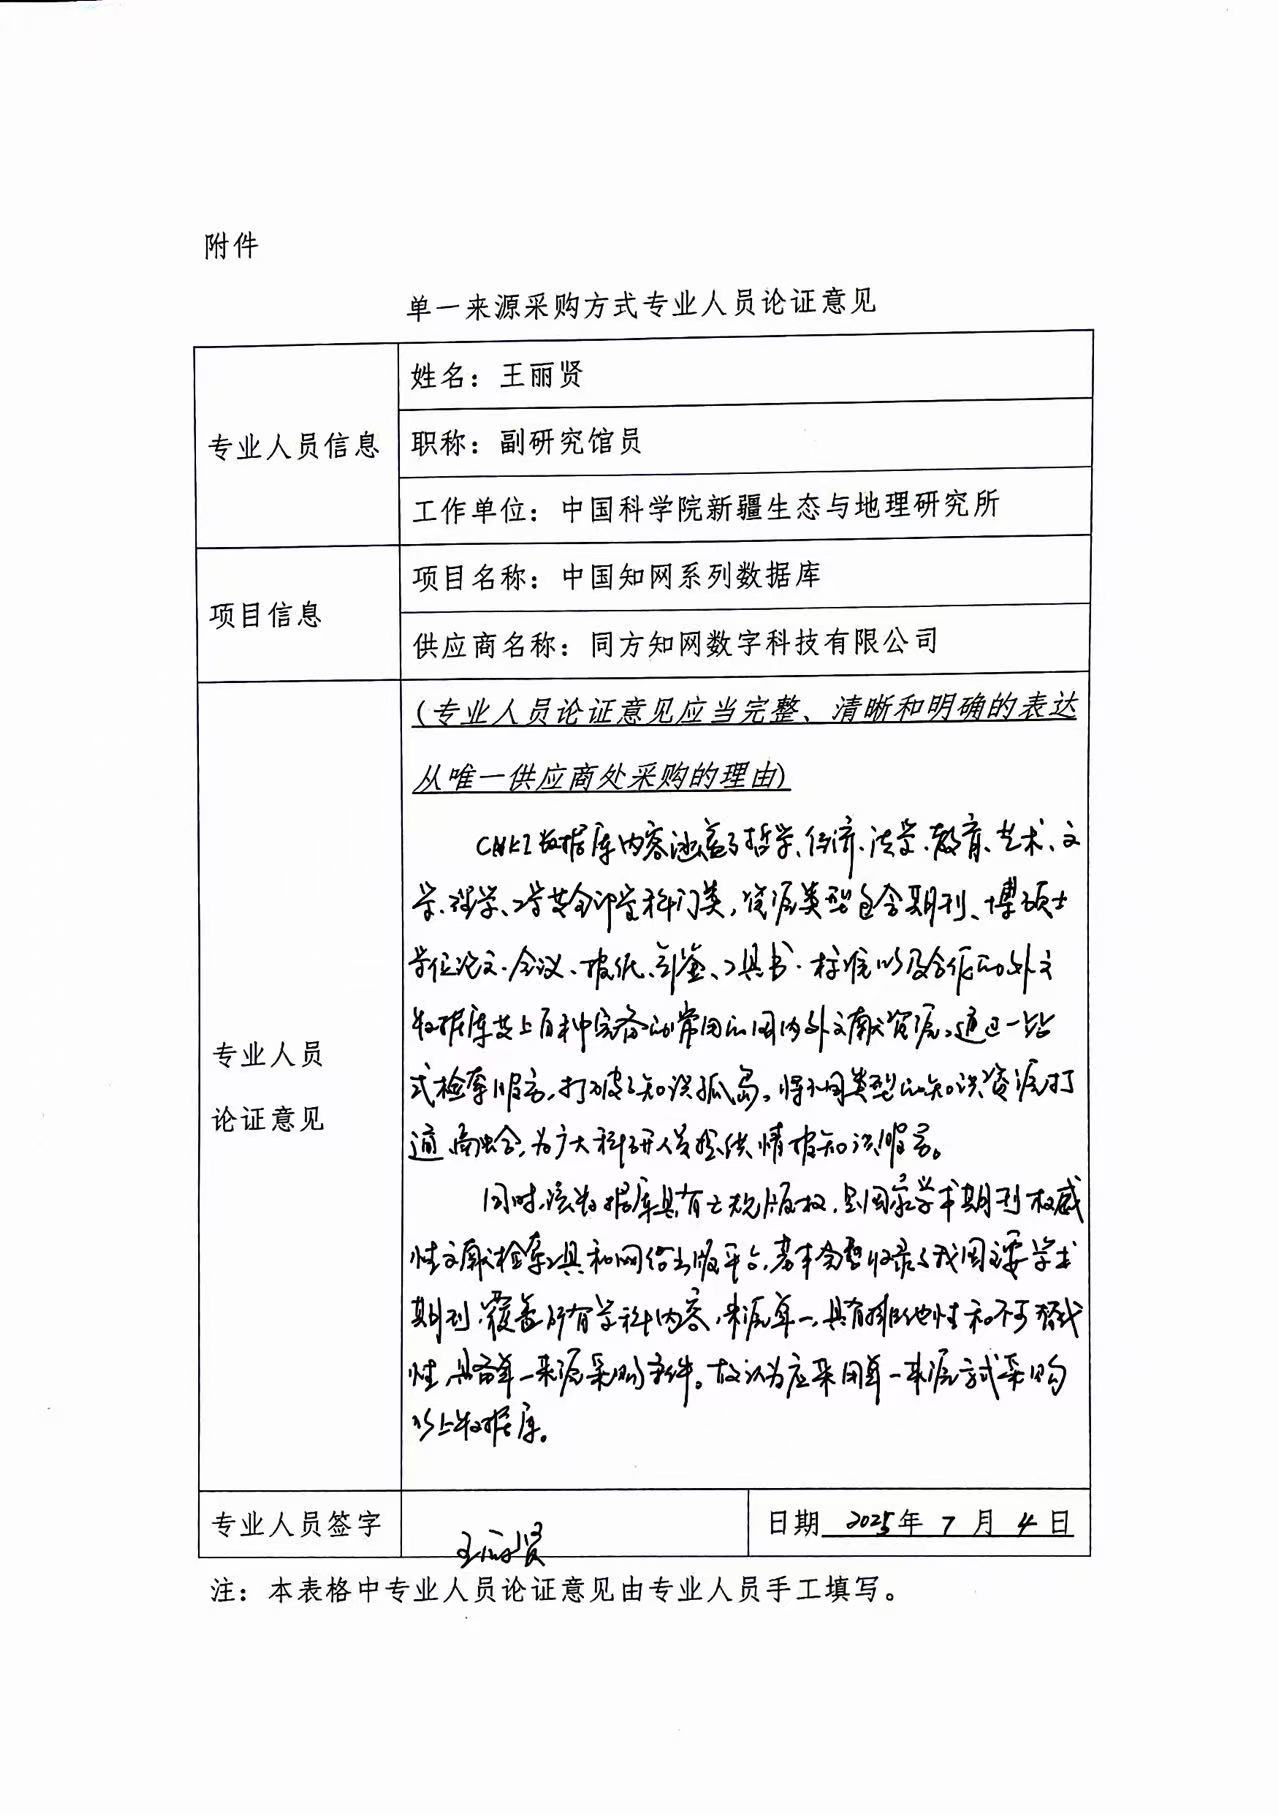 附件
单一来源采购方式专业人员论证意见
专业人员信息
姓名：王丽贤
职称：副研究馆员
工作单位：中国科学院新疆生态与地理研究所
项目信息
项目名称：中国知网系列数据库
供应商名称：同方知网数字科技有限公司
专业人员
论证意见
(专业人员论证意见应当完整、清晰和明确的表达
从唯一供应商处采购的理由)
CNKI数据库内容涵盖了哲学、经济、法学、教育、艺术、文
学、理学、工学等全部学科门类，资源类型包含期刊、博硕士
学位论文、会议、报纸、年鉴、工具书、标准以及合作的外文
数据库等上百种完备的常用的国内外文献资源。通过一站
式检索服务，打破了知识孤岛，将不同类型的知识资源打
通、融合，为广大科研人员提供情报知识服务。
同时，该数据库具有正规版权，是国家学术期刊权威
性文献检索工具和网络出版平台，基本完整收录了我国主要学术
期刊，覆盖所有学科内容，来源单一，具有排他性和不可替代
性，具备单一来源采购条件。故认为应采用单一来源方式采购
以上数据库。
专业人员签字
王丽贤
日期 2025年 7 月 4 日
注：本表格中专业人员论证意见由专业人员手工填写。